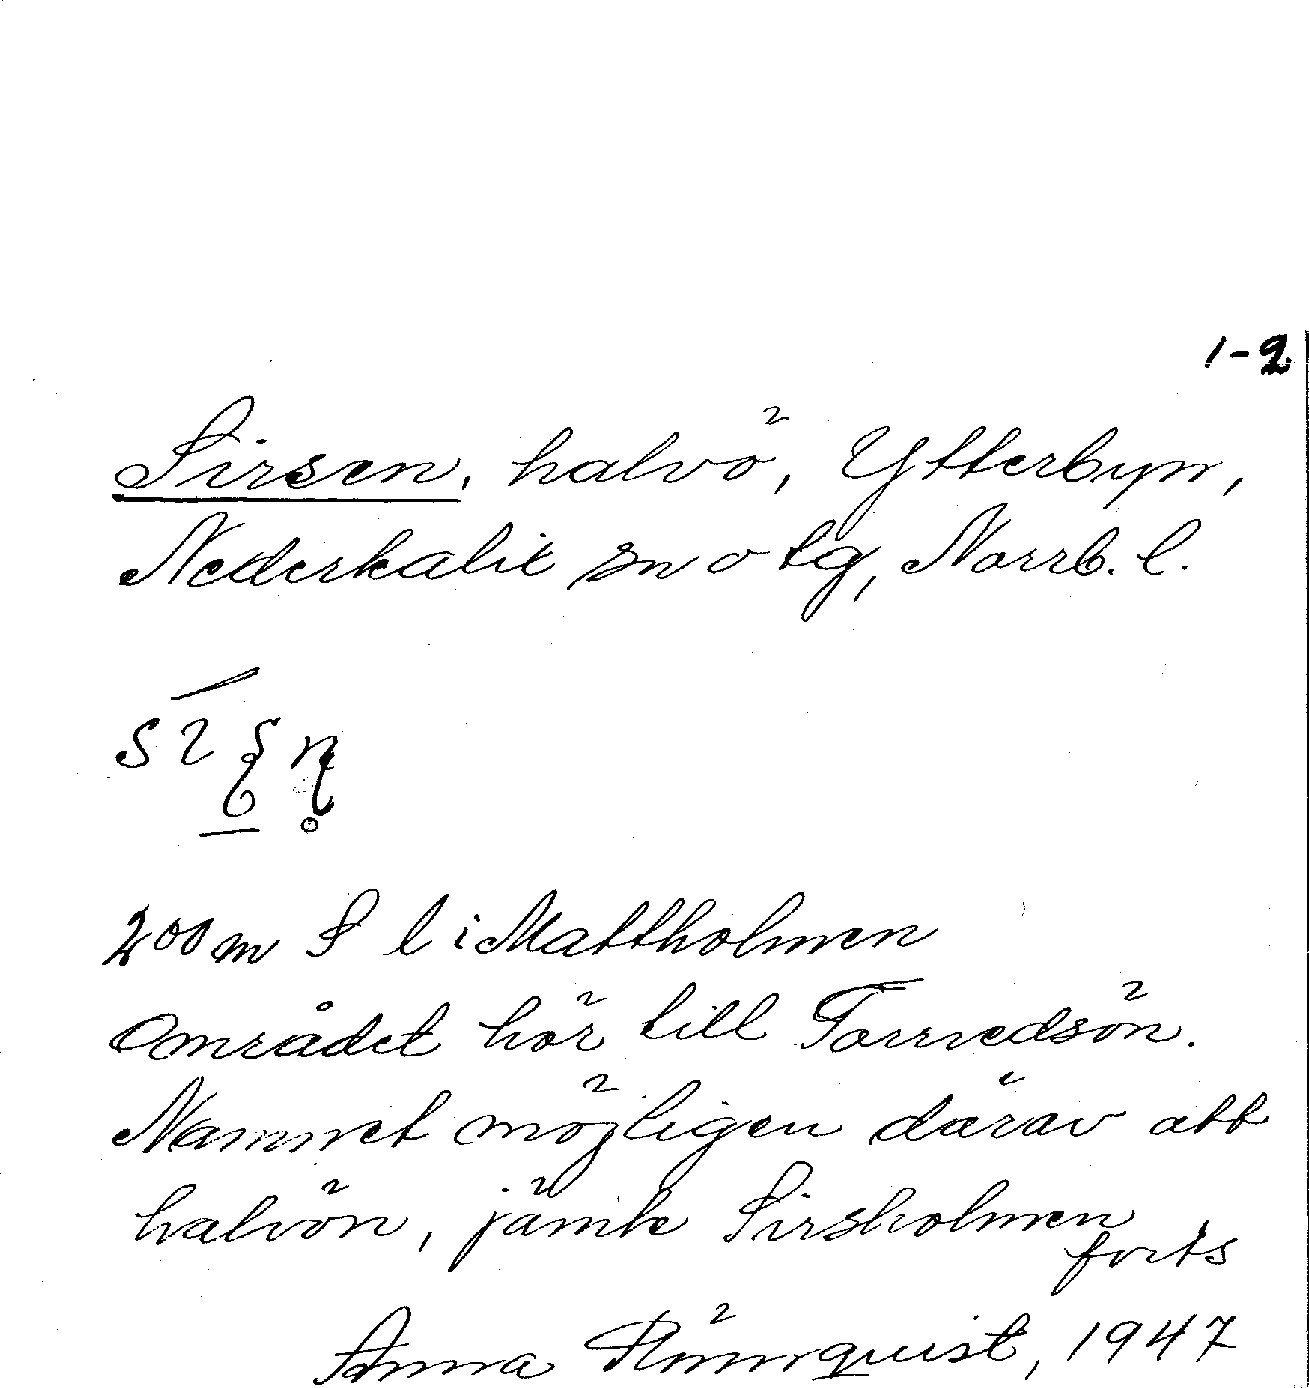 1-2
Sirsen, halvö, Ytterbyn,
Nederkalix sn o tg, Norrb. l.
200 m S l i Mattholmen
Området hör till Torvedsön.
Namnet möjligen därav att
halvön, jämte Sirsholmen
forts
Anna Rönnquist, 1947